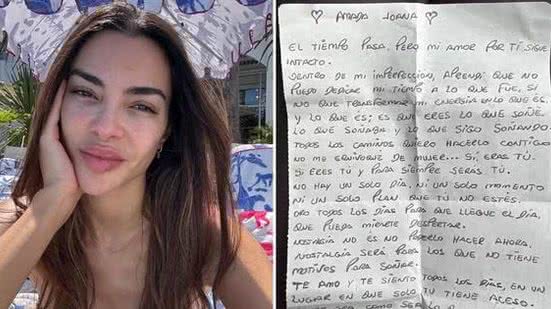 ♡ AMADA JOANA ♡
EL TIEMPO PASA, PERO MI AMOR POR TI SIGUE
INTACTO.
DENTRO DE MI IMPERFECCION, APRENDI QUE NO
PUEDO DEDICAR MI TIEMPO A LO QUE FUE, SI
NO QUE TRANSFORMAR MI ENERGIA EN LO QUE ES.
Y LO QUE ES; ES QUE ERES LO QUE SOÑÉ,
LO QUE SOÑABA Y LO QUE SIGO SOÑANDO
TODOS LOS CAMINOS QUIERO HACERLO CONTIGO
NO ME EQUIVOQUE DE MUJER... SI, ERAS TÚ.
SI ERES TÚ Y PARA SIEMPRE SERAS TÚ.
NO HAY UN SOLO DÍA, NI UN SOLO MOMENTO
NI UN SOLO PLAN QUE TÚ NO ESTÉS.
ORO TODOS LOS DÍAS PARA QUE LLEGUE EL DÍA,
QUE PUEDA MIRARTE DESPERTAR.
NOSTALGIA NO ES NO PODERLO HACER AHORA.
NOSTALGIA SERÁ PARA LOS QUE NO TIENE
MOTIVOS PARA SOÑAR.
TE AMO Y TE SIENTO TODOS LOS DÍAS, EN UN
LUGAR EN QUE SOLO TU TIENE ACESO.